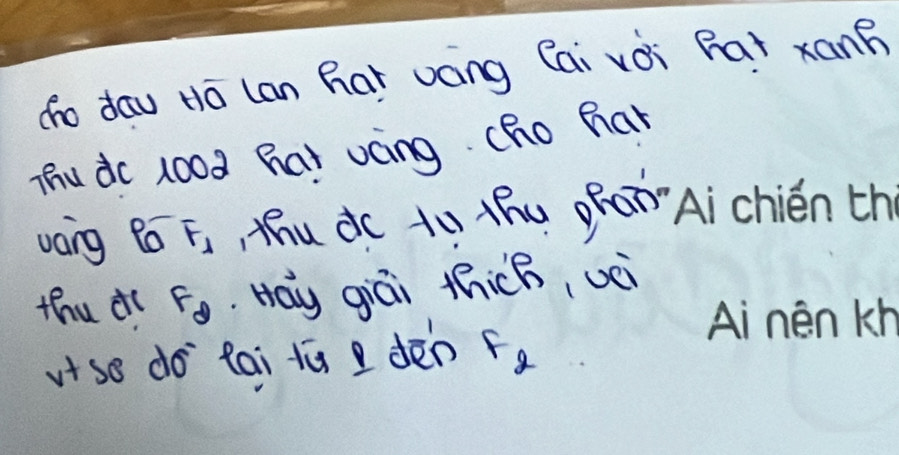 cho đậu Hà Lan hạt vàng lai với hạt xanh
Thu đc 100% hạt vàng. cho hạt
vàng ở F1, thu đc tự thụ phấn
thu đc F2. Hãy giải thích, và
vt sơ đồ lai từ P đến F2
"Ai chiến th
Ai nên kh